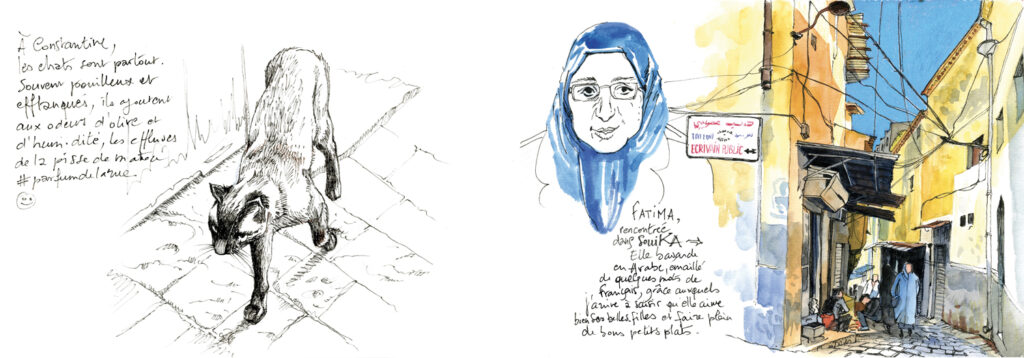 À Constantine,
les chats sont partout.
Souvent pouilleux et
efflanqués, ils ajoutent
aux odeurs d'olive et
d'humidité, les effluves
de la pisse de matou
#parfumdelarue
ECRIVAIN PUBLIC
FATIMA,
rencontrée
dans SouiKA →
Elle bavarde
en Arabe, émaillé
de quelques mots de
Français, grâce auxquels
j'arrive à saisir qu'elle aime
bien ses belles filles et faire plein
de bons petits plats.